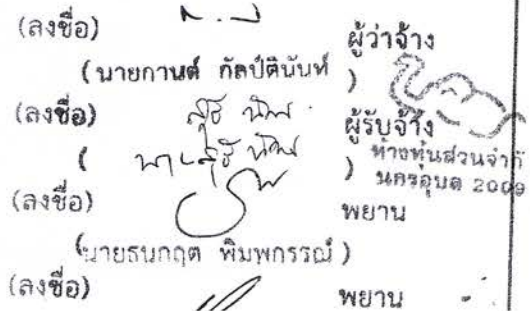 (ลงชื่อ) ผู้ว่าจ้าง
(นายกานต์ กัลป์ตินันท์)
(ลงชื่อ) ผู้รับจ้าง
( )
ห้างหุ้นส่วนจำกั
นครอุบล 2009
(ลงชื่อ) พยาน
(นายธนกฤต พิมพกรรณ์)
(ลงชื่อ) พยาน